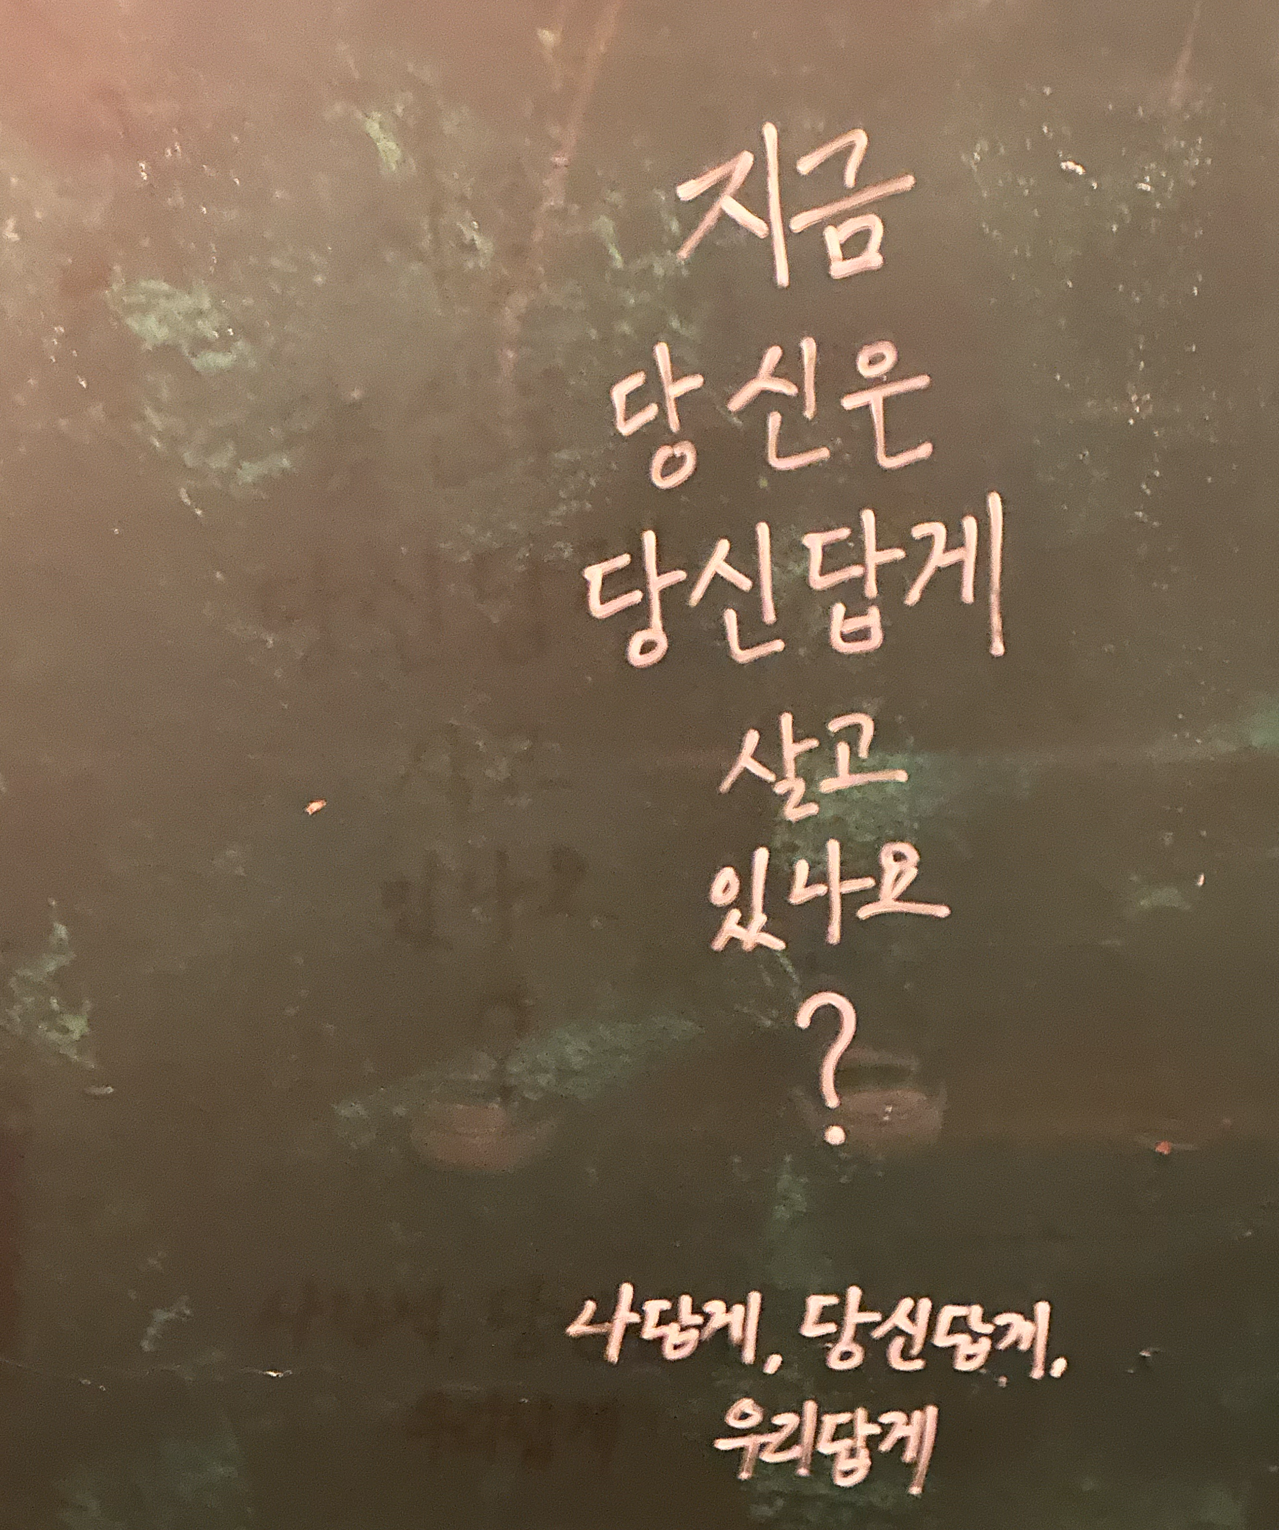 지금
당신은
당신답게
살고
있나요
?
나답게, 당신답게,
우리답게